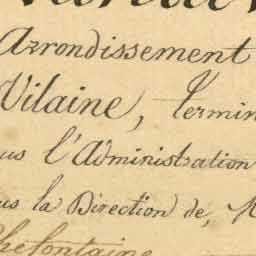 Arrondissement
Vilaine, termin
us l'Administration
us la Direction de, M
hefontaine